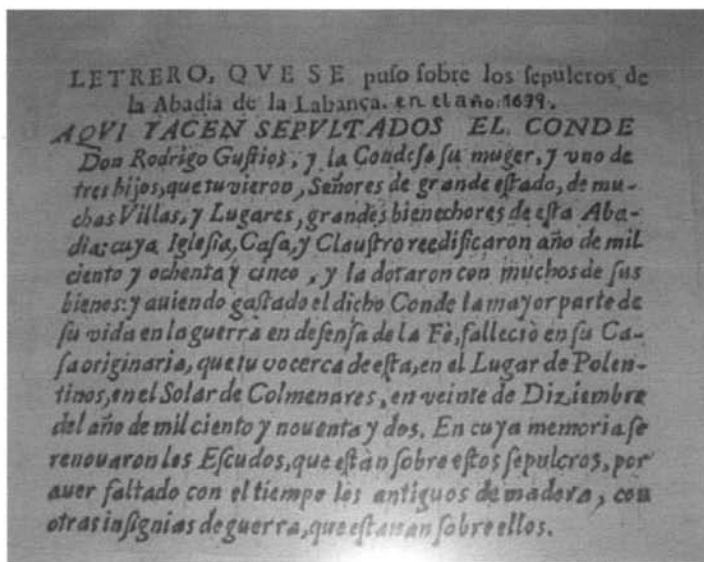 LETRERO, QVE SE puſo ſobre los ſepulcros de
la Abadia de la Labança. en el año. 1679.
AQVI YACEN SEPVLTADOS EL CONDE
Don Rodrigo Guſtios, y la Condeſa ſu muger, y vno de
tres hijos, que tuvieron, Señores de grande eſtado, de mu-
chas Villas, y Lugares, grandes bienechores de eſta Aba-
dia: cuya Igleſia, Caſa, y Clauſtro reedificaron año de mil
ciento y ochenta y cinco, y la dotaron con muchos de ſus
bienes: y auiendo gaſtado el dicho Conde la mayor parte de
ſu vida en la guerra en defenſa de la Fè, fallecio en ſu Ca-
ſa originaria, que tuvo cerca de eſta, en el Lugar de Polen-
tinos, en el Solar de Colmenares, en veinte de Diziembre
del año de mil ciento y nouenta y dos. En cuya memoria ſe
renouaron los Eſcudos, que eſtàn ſobre eſtos ſepulcros, por
auer faltado con el tiempo los antiguos de madera, con
otras inſignias de guerra, que eſtauan ſobre ellos.